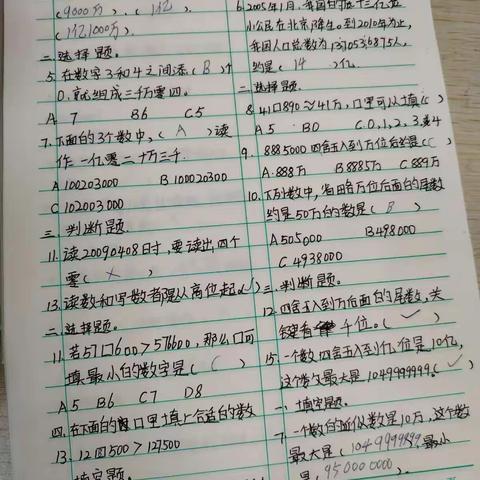 (9000万)、(1亿)、
(1亿1000万)
二.选择题。
5.在数字3和4之间添(B)个
0.就组成三千万零四。
A 7 B6 C5
7.下面的3个数中,(A)读
作一亿零二十万三千.
A 100203000 B 100020300
C 102003000
三.判断题.
11.读20090408日时,要读出四个
零(×)
13.读数和写数都是从高位起(√)
二.选择题。
11.若57口600>576600,那么口可
填最小的数字是(C)
A5 B6 C7 D8
四.在下面的口里填上合适的数
13.12回500>127500
填空题。
6.2005年1月,我国
小公民在北京降生。到2010年为止,
我国人口总数为1370536875人,
约是(14)亿。
二.选择题.
8.41口890≈41万,口里可以填(C)
A5 B0 C.0,1,2,3或4
9.8885000四舍五入到万位后约是(C)
A.888万 B.8885万 C889万
10.下列数中,省略万位后面的尾数
约是50万的数是(B)
A505000 B498000
C.4938000
三.判断题。
12.四舍五入到万位后面的尾数,关
键看千位。(√)
15.一个数四舍五入到亿位是10亿,
这个数最大是1049999999(√)
一.填空题。
7.一个数的近似数是10万,这个数
最大是(1049999999,最小
是(95000000)。